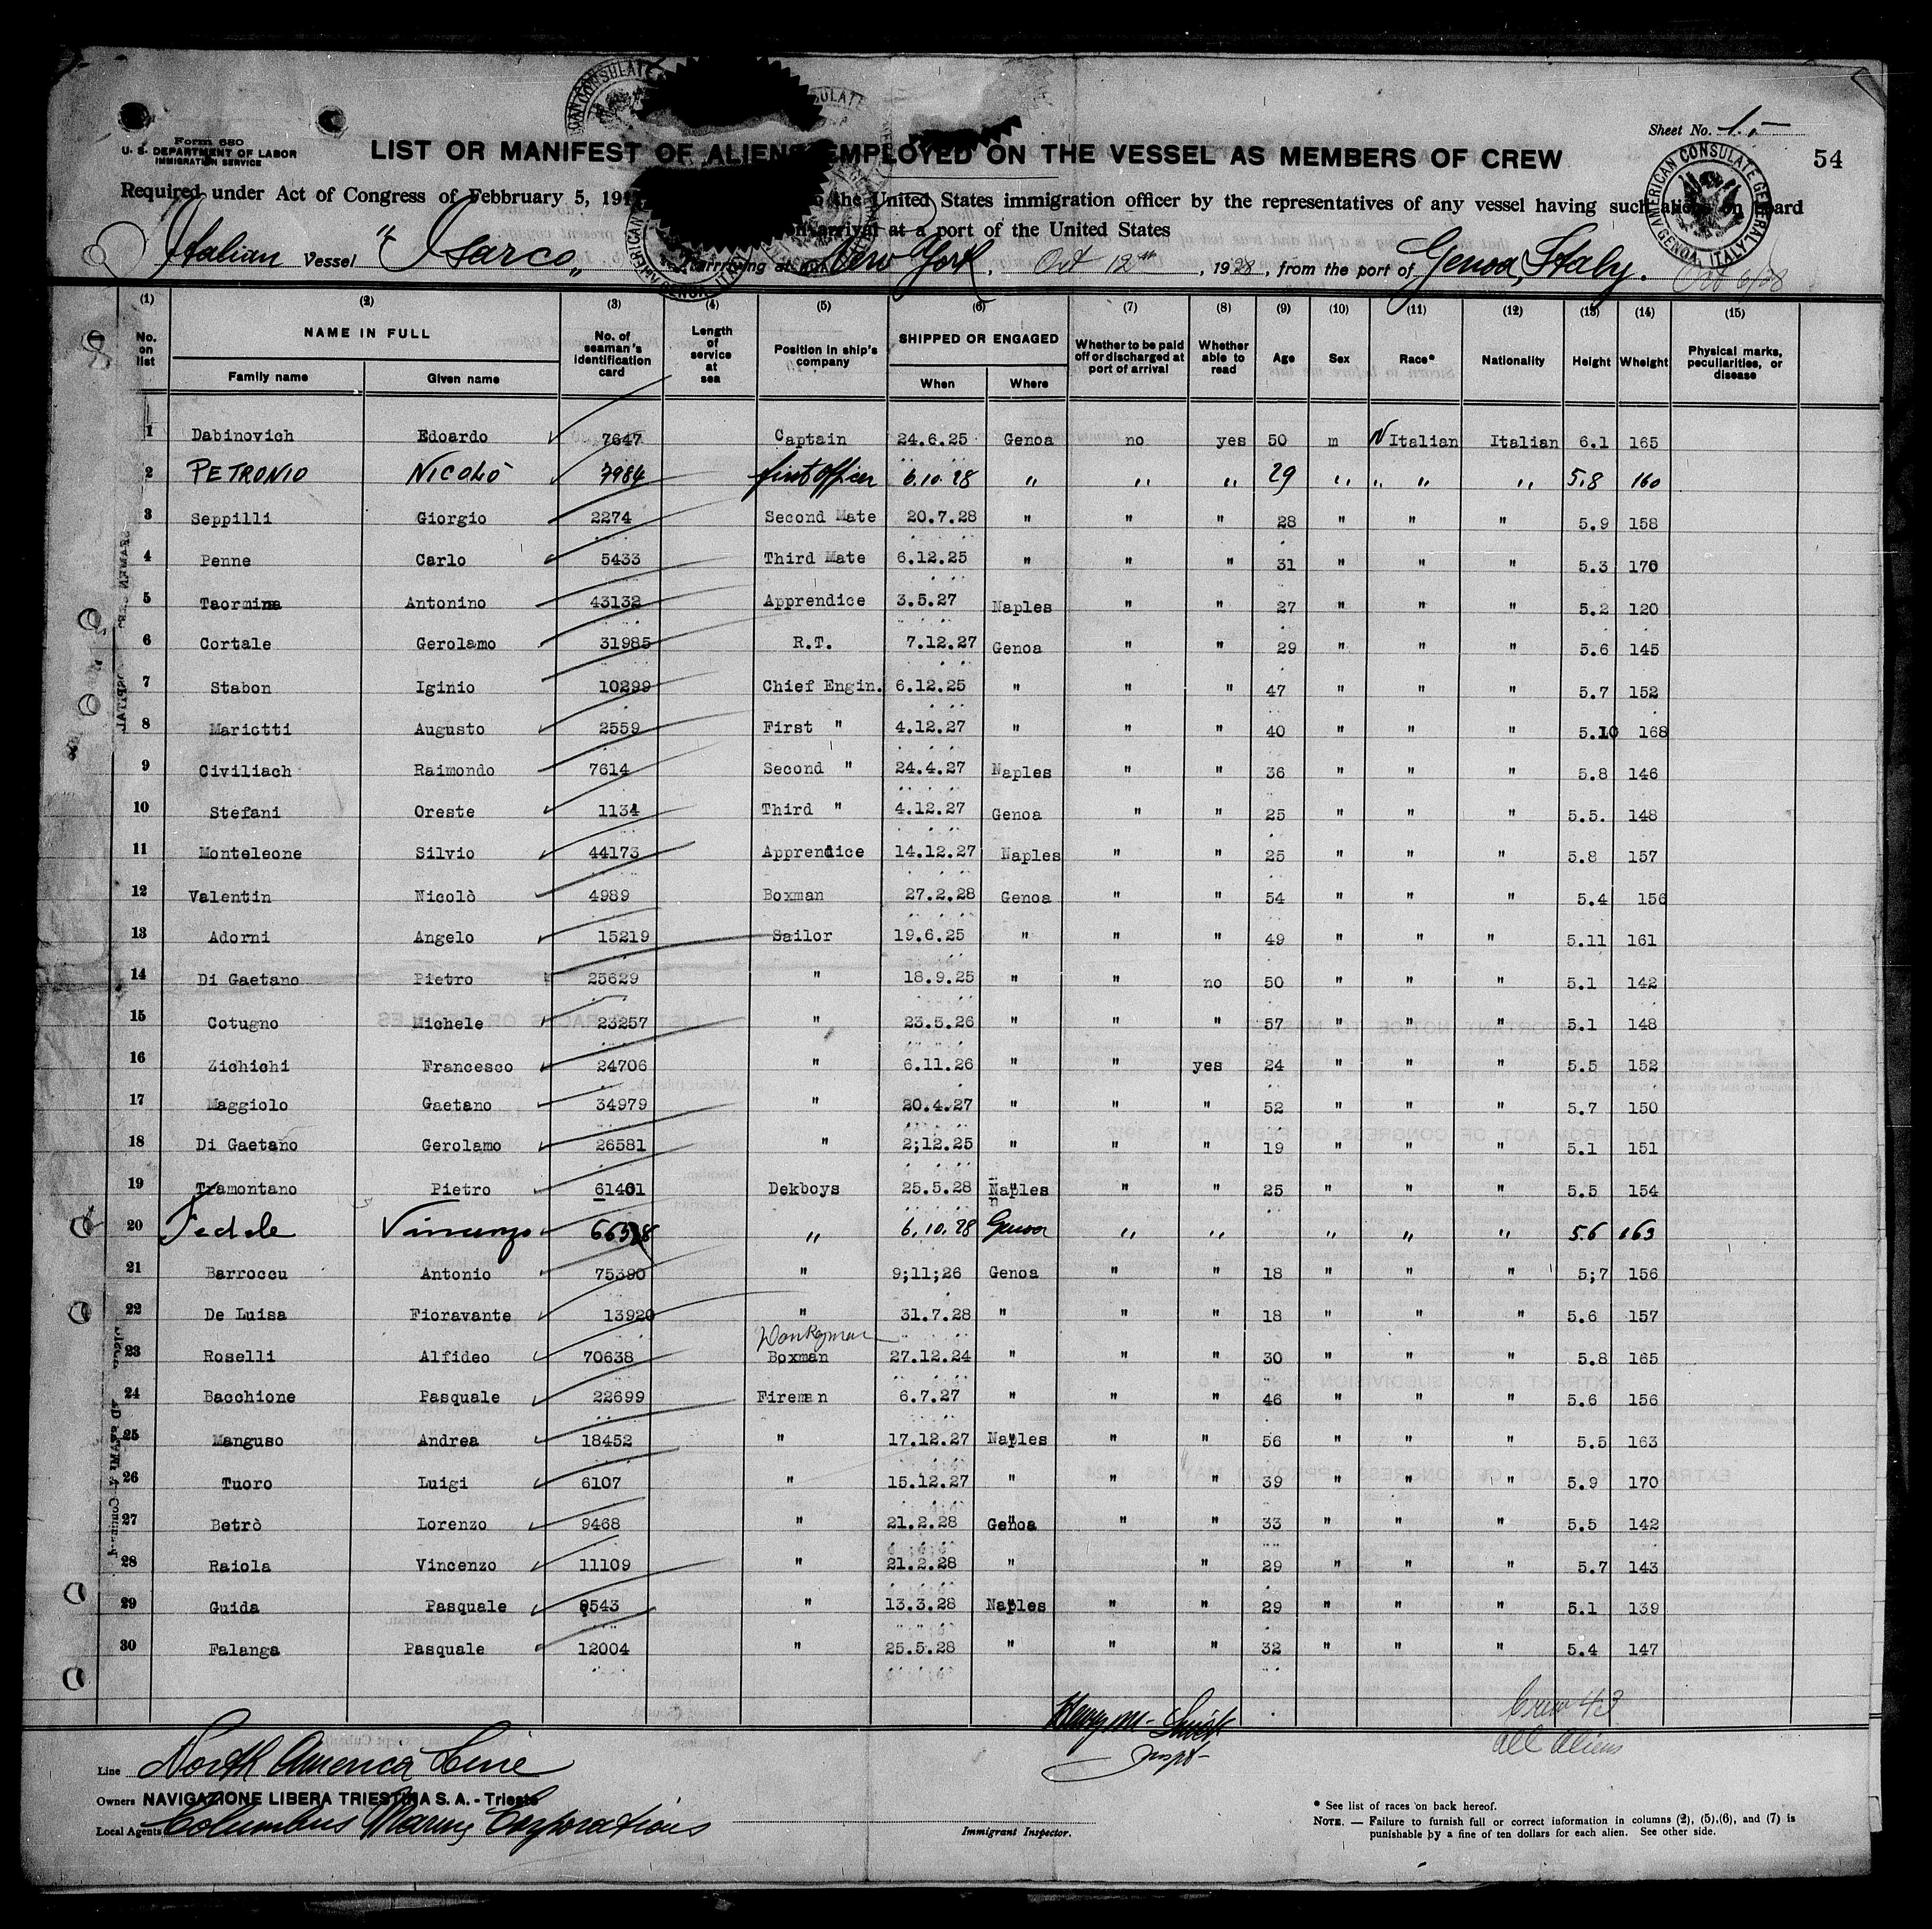 Sheet No. 1.
54
Form 680
U. S. DEPARTMENT OF LABOR
IMMIGRATION SERVICE
LIST OR MANIFEST OF ALIENS EMPLOYED ON THE VESSEL AS MEMBERS OF CREW
Required under Act of Congress of Febbruary 5, 191 the United States immigration officer by the representatives of any vessel having such aliens on board
arrival at a port of the United States
Italian Vessel "Isarco" arriving at New York, Oct 12th, 1928, from the port of Genoa, Italy. Oct 6/28
AMERICAN CONSULATE GENERAL GENOA, ITALY
(1) (2) (3) (4) (5) (6) (7) (8) (9) (10) (11) (12) (13) (14) (15)
No. on list NAME IN FULL Family name Given name No. of seaman's identification card Length of service at sea Position in ship's company SHIPPED OR ENGAGED When Where Whether to be paid off or discharged at port of arrival Whether able to read Age Sex Race* Nationality Height Wheight Physical marks, peculiarities, or disease
1 Dabinovich Edoardo 7647 Captain 24.6.25 Genoa no yes 50 m N Italian Italian 6.1 165
2 PETRONIO NICOLÒ 7984 first officer 6.10.28 " " " 29 " " " " 5.8 160
3 Seppilli Giorgio 2274 Second Mate 20.7.28 " " " 28 " " " 5.9 158
4 Penne Carlo 5433 Third Mate 6.12.25 " " " 31 " " " 5.3 170
5 Taormina Antonino 43132 Apprendice 3.5.27 Naples " " 27 " " " 5.2 120
6 Cortale Gerolamo 31985 R.T. 7.12.27 Genoa " " 29 " " " 5.6 145
7 Stabon Iginio 10299 Chief Engin. 6.12.25 " " " 47 " " " 5.7 152
8 Marictti Augusto 2559 First " 4.12.27 " " " 40 " " " 5.10 168
9 Civiliach Raimondo 7614 Second " 24.4.27 Naples " " 36 " " " 5.8 146
10 Stefani Oreste 1134 Third " 4.12.27 Genoa " " 25 " " " 5.5. 148
11 Monteleone Silvio 44173 Apprendice 14.12.27 Naples " " 25 " " " 5.8 157
12 Valentin Nicolò 4989 Boxman 27.2.28 Genoa " " 54 " " " 5.4 156
13 Adorni Angelo 15219 Sailor 19.6.25 " " " 49 " " " 5.11 161
14 Di Gaetano Pietro 25629 " 18.9.25 " " no 50 " " " 5.1 142
15 Cotugno Michele 23257 " 23.5.26 " " " 57 " " " 5.1 148
16 Zichichi Francesco 24706 " 6.11.26 " " yes 24 " " " 5.5 152
17 Maggiolo Gaetano 34979 " 20.4.27 " " " 52 " " " 5.7 150
18 Di Gaetano Gerolamo 26581 " 2;12.25 " " " 19 " " " 5.1 151
19 Tramontano Pietro 61401 Dekboys 25.5.28 Naples " " 25 " " " 5.5 154
20 Fedele Vincenzo " 6.10.28 Genoa " " " " " 5.6 163
21 Barroccu Antonio 75390 " 9;11;26 Genoa " " 18 " " " 5;7 156
22 De Luisa Fioravante 13920 " 31.7.28 " " " 18 " " " 5.6 157
Donkeyman
23 Roselli Alfideo 70638 Boxman 27.12.24 " " " 30 " " " 5.8 165
24 Bacchione Pasquale 22699 Fireman 6.7.27 " " " 46 " " " 5.6 156
25 Manguso Andrea 18452 " 17.12.27 Naples " " 56 " " " 5.5 163
26 Tuoro Luigi 6107 " 15.12.27 " " " 39 " " " 5.9 170
27 Betrò Lorenzo 9468 " 21.2.28 Genoa " " 33 " " " 5.5 142
28 Raiola Vincenzo 11109 " 21.2.28 " " 29 " " " 5.7 143
29 Guida Pasquale 9543 " 13.3.28 Naples " " 29 " " " 5.1 139
30 Falanga Pasquale 12004 " 25.5.28 " " " 32 " " " 5.4 147
Crew 43
all aliens
Inspt
Line North America Line
Owners NAVIGAZIONE LIBERA TRIESTINA S. A. - Trieste
Local Agents Columbus Marine Corporation
Immigrant Inspector.
* See list of races on back hereof.
NOTE. — Failure to furnish full or correct information in columns (2), (5),(6), and (7) is
punishable by a fine of ten dollars for each alien. See other side.